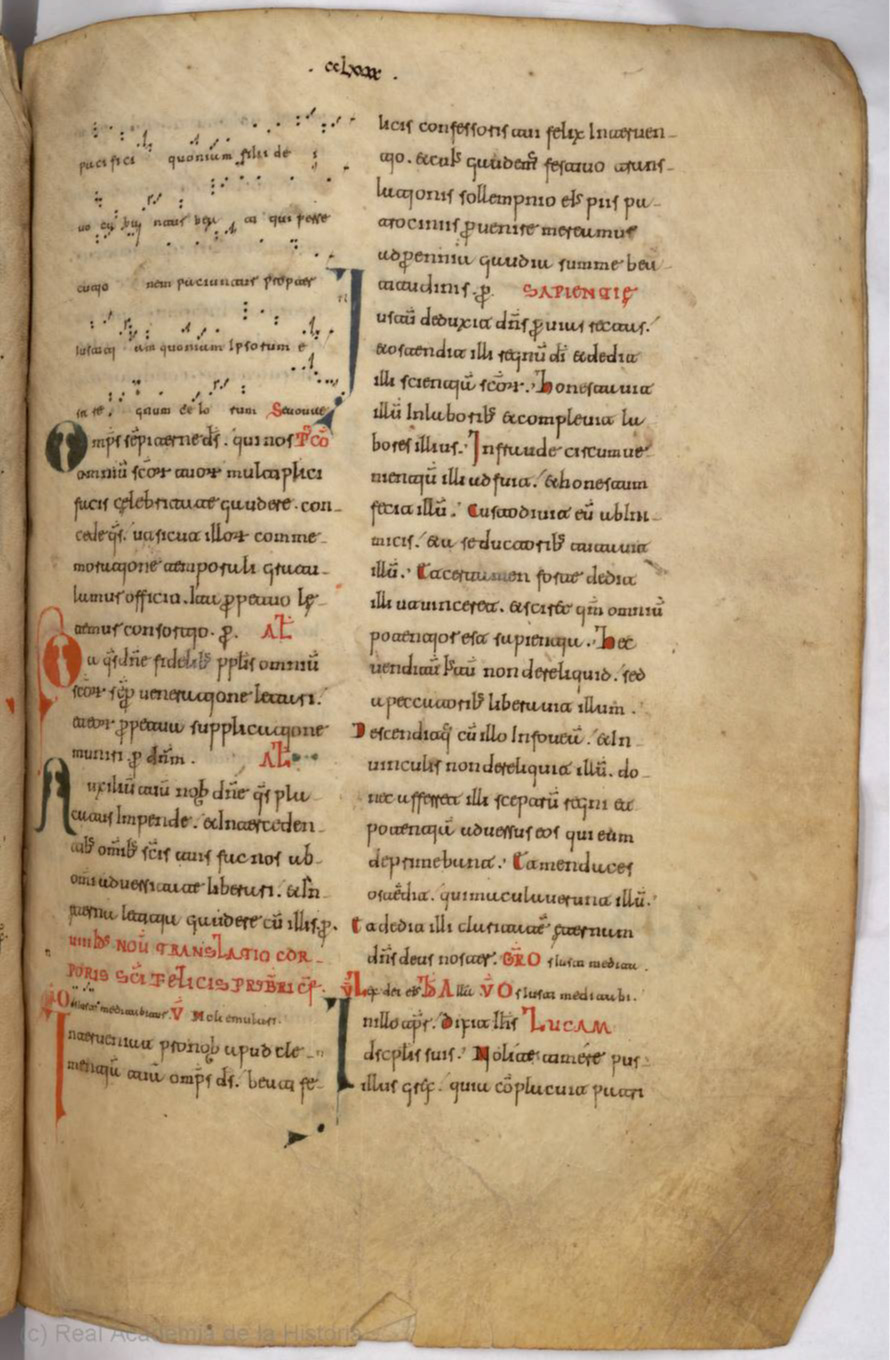 . cclxxx .
pacifici quoniam filii de
i
uo ca bun tur bea ti qui perse
cutio nem patiuntur propter
iustitiam quoniam ipsorum e
st re gnum ce lo rum Seuouae
Omps sepiterne ds. qui nos Pco
omniu scor tuor multiplici
facis celebritate gaudere. con
cede qs. ut sicut illor comme
moratione temporali gratu
lamur officio. ita ppetuo le
temur consortio. p. Al
Da qs dne fidelib pplis omniu
scor sep ueneratione letari.
et eor ppetua supplicatione
muniri. p dnm. Al
Auxiliu tuu nob dne qs pla
catus impende. et interceden
tib omib scis tuis fac nos ab
omi aduersitate liberari. et in
eterna letitia gaudere cu illis. p.
NOU TRANSLATIO COR
PORIS SCI FELICIS PRBRI CF.
Os iusti meditabitur. V Noli emulari.
Interueniat pro nob apud cle
mentia tua omps ds. beati fe
licis confessoris tui felix interuen
tio. et cuius gaudem festiuo trans
lationis sollempnio eius piis pa
trociniis puenire mereamur
ad perennia gaudia summe bea
titudinis. p. SAPIENTIE
Iustu deduxit dns p uias rectas.
et ostendit illi regnu di et dedit
illi scientia scor. Honestauit
illu in laborib et compleuit la
bores illius. In fraude circumue
nientiu illi adfuit. et honestum
fecit illu. Custodiuit eu ab ini
micis. et a seductorib tutauit
illu. Et certamen forte dedit
illi ut uinceret. et sciret qm omniu
potentior est sapientia. Hec
uenditu iustu non dereliquid. sed
a peccatorib liberauit illum.
Descenditq cu illo in foueu. et in
uinculis non dereliquit illu. do
nec afferret illi sceptru regni et
potentia aduersus eos qui eum
deprimebant. Et mendaces
ostedit. qui maculauerunt illu.
Et dedit illi claritate eternum
dns deus noster. GRO Os iusti meditau.
V Lex dei eius. Alla VO Os iusti meditabi.
In illo tpr. Dixit ihs LUCAM
discplis suis. Nolite timere pus
illus grex. quia coplacuit patri
(c) Real Academia de la Historia